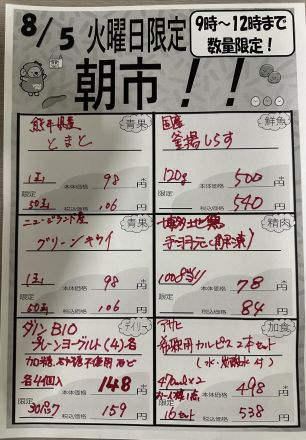 8/5 火曜日限定
9時～12時まで
数量限定！
朝市！！
熊本県産
青果
とまと
1玉 本体価格 98円
限定 50玉 税込価格 106円
国産
鮮魚
釜揚しらす
120g 本体価格 500円
限定 税込価格 540円
ニュージランド産
青果
グリーンキウイ
1玉 本体価格 98円
限定 50玉 税込価格 106円
博多地鶏
精肉
手羽元(解凍)
100g当り 本体価格 78円
限定 税込価格 84円
ダノンBIO
デイリー
プレーンヨーグルト(4)名
加糖、砂糖不使用など
各4個入 本体価格 148円
限定 30パック 税込価格 159円
アサヒ
加食
希釈用カルピス2本セット
(水・炭酸水付)
470ml×2 本体価格 498円
限定 16セット 税込価格 538円